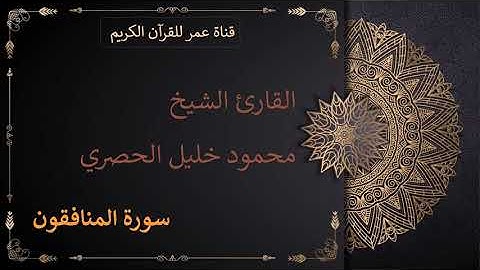 قناة عمر للقرآن الكريم
القارئ الشيخ
محمود خليل الحصري
سورة المنافقون